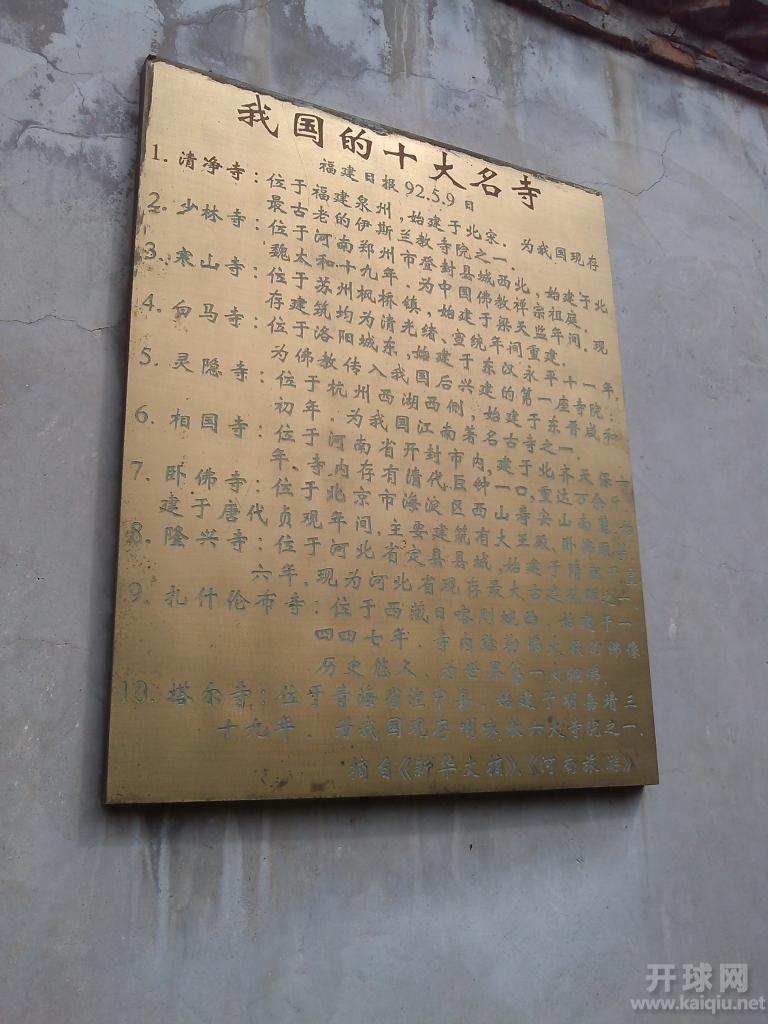 我国的十大名寺
福建日报 92.5.9日
1. 清净寺：位于福建泉州，始建于北宋．为我国现存
最古老的伊斯兰教寺院之一．
2. 少林寺：位于河南郑州市登封县城西北，始建于北
魏太和十九年．为中国佛教禅宗祖庭．
3. 寒山寺：位于苏州枫桥镇，始建于梁天监年间．现
存建筑均为清光绪、宣统年间重建．
4. 白马寺：位于洛阳城东，始建于东汉永平十一年，
为佛教传入我国后兴建的第一座寺院．
5. 灵隐寺：位于杭州西湖西侧，始建于东晋咸和
初年．为我国江南著名古寺之一．
6. 相国寺：位于河南省开封市内，建于北齐天保
年．寺内存有清代巨钟一口，重达万余斤
7. 卧佛寺：位于北京市海淀区西山寺安山南麓，始
建于唐代贞观年间，主要建筑有大王殿、卧佛殿
8. 隆兴寺：位于河北省定县县城，始建于隋
六年．现为河北省现存最大古建筑群之一．
9. 札什伦布寺：位于西藏日喀则城西．始建于一
四四七年．寺内弥勒佛大殿的佛像
历史悠久．为世界第一大铜佛．
10. 塔尔寺：位于青海省湟中县．始建于明嘉靖三
十九年．为我国现存喇嘛教六大寺院之一．
摘自《新华文摘》、《河南旅游》
开球网
www.kaiqiu.net